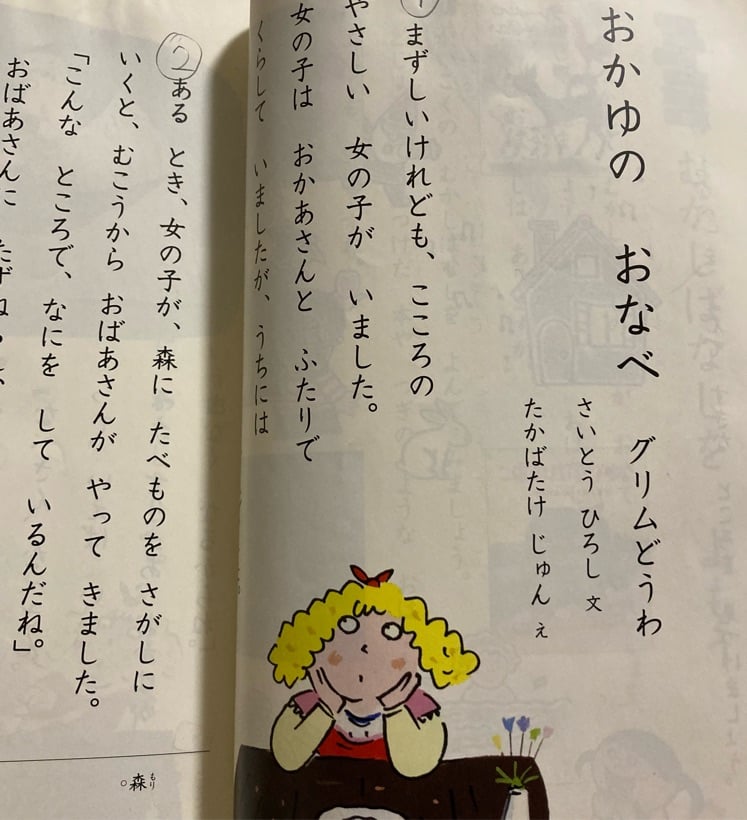 おかゆの おなべ
グリムどうわ
さいとう ひろし 文
たかばたけ じゅん え
まずしいけれども、こころの
やさしい 女の子が いました。
女の子は おかあさんと ふたりで
くらして いましたが、うちには
2
ある とき、女の子が、森に たべものを さがしに
いくと、むこうから おばあさんが やって きました。
「こんな ところで、なにを して いるんだね。」
おばあさんに
森
もり